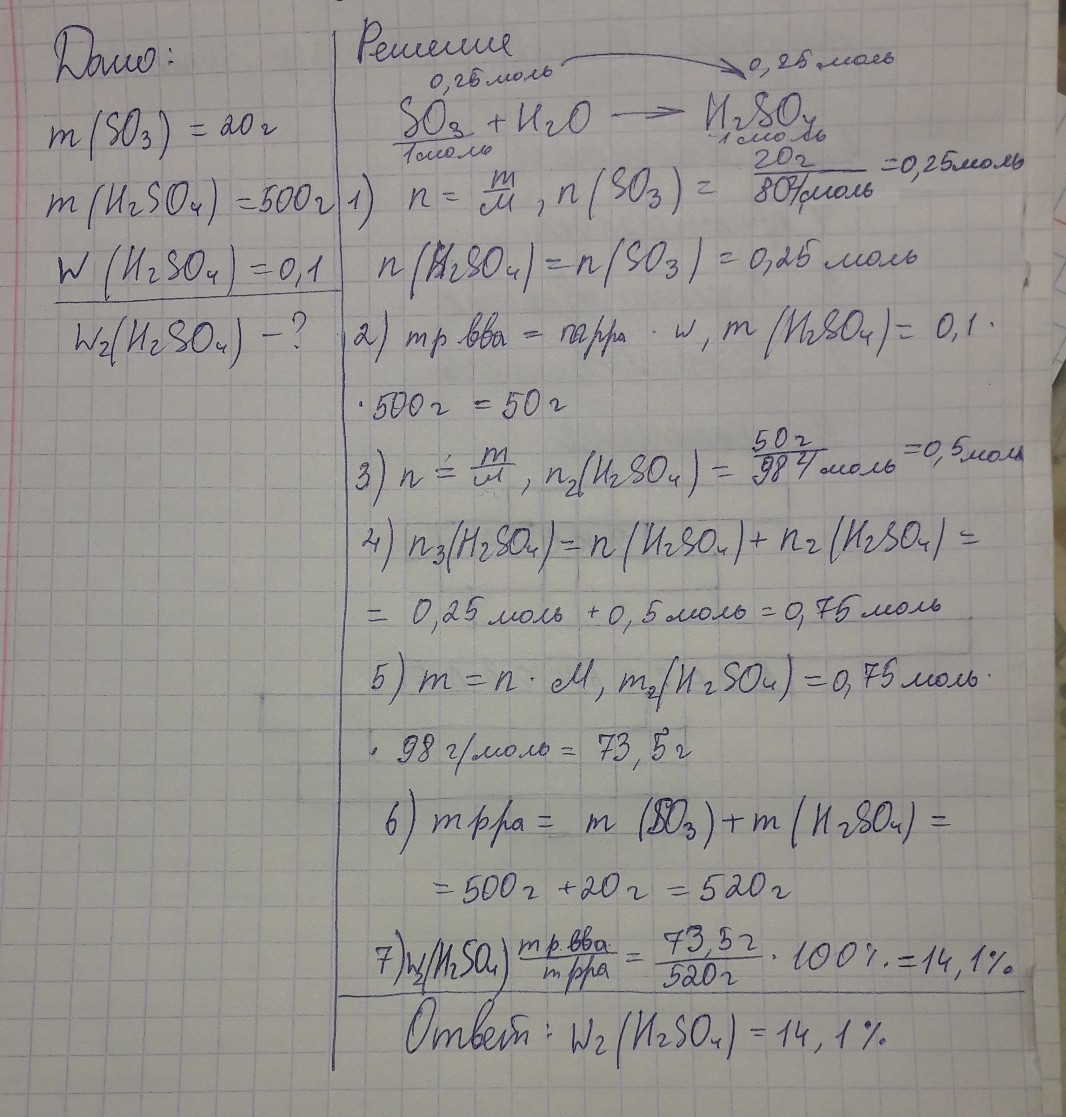 Дано:
m(SO₃) = 20г
m(H₂SO₄) = 500г
W(H₂SO₄) = 0,1
W₂(H₂SO₄) - ?
Решение
0,25 моль 0,25 моль
SO₃ + H₂O → H₂SO₄
1 моль 1 моль
1) n = m/M, n(SO₃) = 20г/80г/моль = 0,25 моль
n(H₂SO₄) = n(SO₃) = 0,25 моль
2) m р.вва = m рра · w, m(H₂SO₄) = 0,1 ·
· 500г = 50г
3) n = m/M, n₂(H₂SO₄) = 50г/98г/моль = 0,5 моль
4) n₃(H₂SO₄) = n(H₂SO₄) + n₂(H₂SO₄) =
= 0,25 моль + 0,5 моль = 0,75 моль
5) m = n · M, m₂(H₂SO₄) = 0,75 моль ·
· 98 г/моль = 73,5г
6) m рра = m(SO₃) + m(H₂SO₄) =
= 500г + 20г = 520г
7) W₂(H₂SO₄) m р.вва/m рра = 73,5г/520г · 100% = 14,1%
Ответ: W₂(H₂SO₄) = 14,1%.